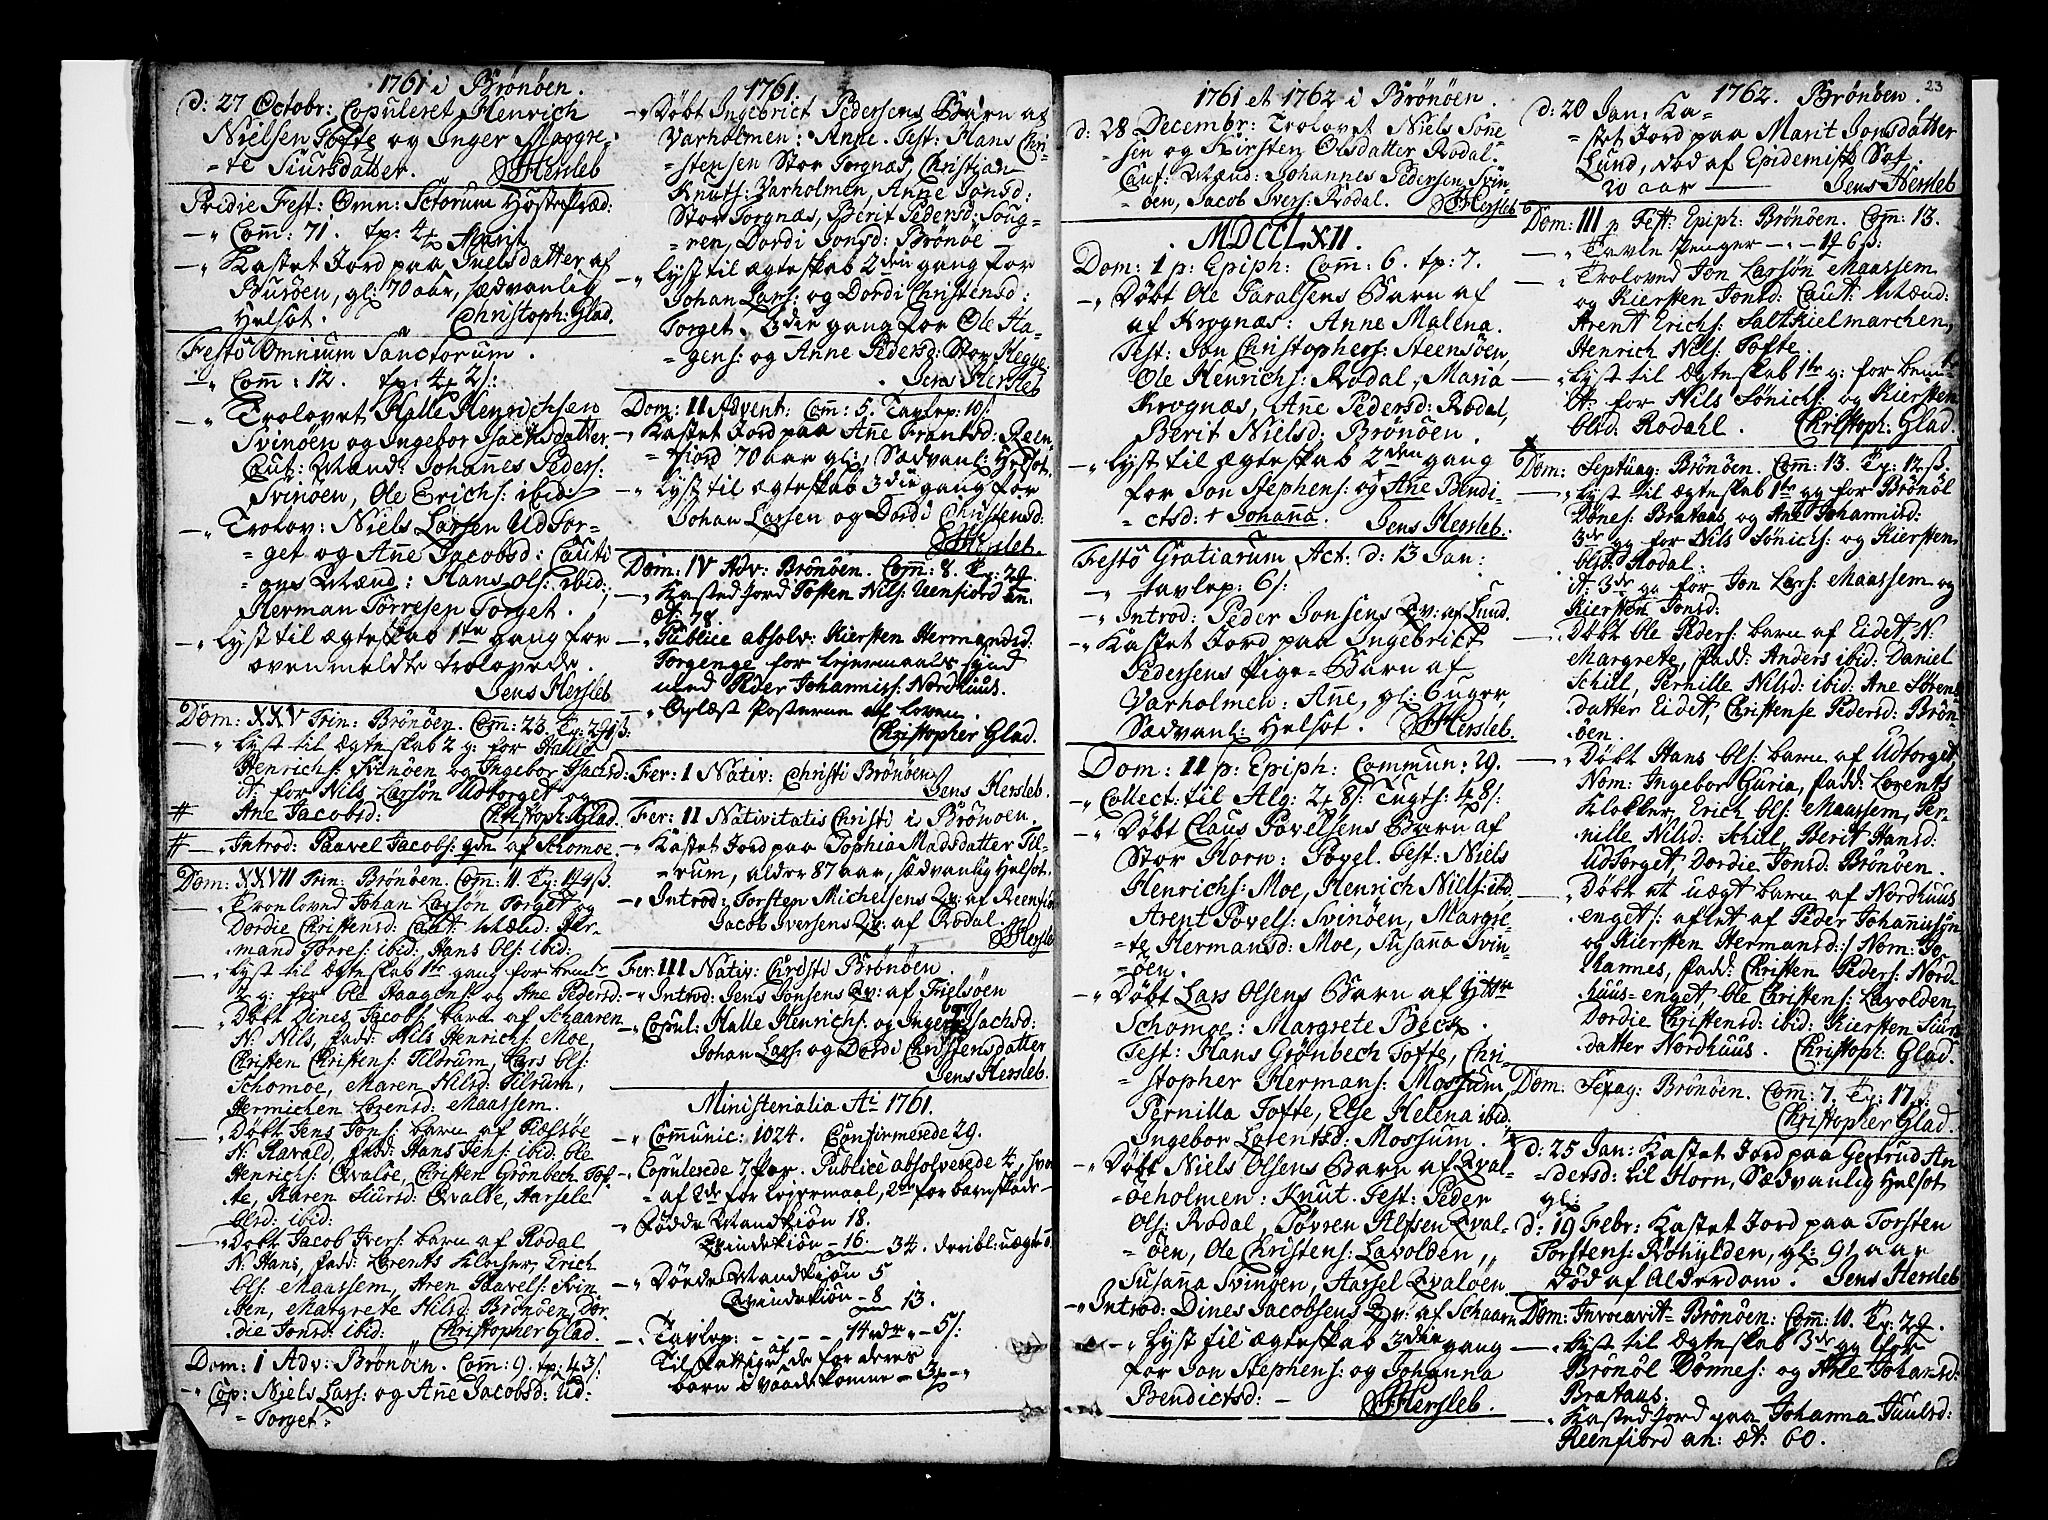 1761 i Brönöen.
d: 27 Octobr: Copuleret Henrich
Nielsen Tofte og Inger Maggre-
-te Siursdatter. JHersleb
Pridie Fest: Omn: Sctorum Höstepræd:
Com̄: 71. tp: 4
Marit
Kastet Jord paa Nielsdatter af
Buröen, gl: 70 aar, sædvanlig
Helsot. Christoph: Glad.
Festo Omnium Sanctorum.
Com̄: 12. tp: 4 2/:
Trolovet Halle Henrichsen
Svinöen og Ingebor Isachsdatter
Caut: Mænd: Johannes Peders:
Svinöen, Ole Erichs: ibid:
Trolov: Niels Larsen Udtor-
get og Añe Jacobsd: Cauti
ones Mænd: Hans Ols: ibid:
Herman Torresen Torget.
Lyst til ægteskab 1te gang for
ovenmeldte trolovede.
Jens Hersleb
Dom: XXV Trin: Brönöen. Com̄: 23. Tp:
Lyst til Ægteskab 2 g: for Halle
Henrichs: Svinöen og Ingebor Isachsd:
it: for Nils Larsøn Udtorget og
# Ane Jacobsd: Christoph: Glad.
# Introd: Paavel Jacobs: qde af Schomoe.
Dom: XXVII Trin: Brönöen. Com̄: 11. Tp:
Tronloved Johan Larsøn Torget og
Dordie Christensd: Caut: Mænd Her-
mand Törres: ibid: Hans Ols: ibid:
Lyst til ægteskab 1te gang for
2 g: for Ole Haagens: og Ane Pedersd:
Döbt Dines Jacobs: barn af Schaaren
N: Nils, fadd: Nils Henrichs: Moe,
Christen Christens: Tilrum, Lars Ols:
Schomoe, Maren Nilsd: Tilrum,
Hermichen Lorensd: Maassem.
Döbt Jens Jons: barn af
N: Harald, fadd: Hans Jens: ibid: Ole
Henrichs: Qvalöe, Christen Grönbech Tof-
te, Karen Siursd: Qvalöe, Aarsele
Olsd: ibid:
Döbt Jacob Ivers: barn af Rodal
N: Hans, fadd: Lorents Klocker, Erich
Ols: Maassem, Aren Paavels: Svin-
öen, Margrete Nilsd: Brönöen, Dor-
die Jonsd: ibid: Christopher Glad.
Dom: 1 Adv: Brönöen. Com̄: 9. tp: 4 3/:
Cop: Niels Lars: og Añe Jacobsd: Ud-
-Torget:
1761.
Döbt Ingebrict Pedersens Barn af
Varholmen: Anne. Test: Hans Chri-
stensen Stor Torgnæs, Christian
Knuts: Varholmen, Anne Jonsd:
Stor Torgnæs, Berit Pedersd: Soug-
-ren, Dordi Jonsd: Brönöe
Lyst til ægteskab 2den gang for
Johan Lars: og Dordi Christensd:
Torget. 3die gang for Ole Ha-
gens: og Anne Pedersd: Stor Hegge.
Jens Hersleb
Dom: II Advent: Com̄: 5. Tavlep: 10/:
Kastet Jord paa Añe Frantsd: Reen-
fiord 70 aar gl:, Sædvanl: Helsot.
Lyst til ægteskab 3die gang for
Johan Larsen og Dordi Christensd:
JHersleb.
Dom: IV Adv: Brönöen. Com̄: 8. Tp:
Kasted Jord Torsten Nils: Reenfiord an.
æt: 78.
Publice absolv: Kiersten Hermandsd:
Torgenge for Leiermaals synd
med Peder Johannis: Nordhuus.
Oplæst Posterne af Loven.
Christopher Glad.
Fer: 1 Nativ: Christi Brönöen.
Jens Hersleb.
Fer: II Nativitatis Christi i Brönöen.
Kastet Jord paa Sophia Madsdatter Til-
-rum, alder 87 aar, sædvanlig Helsot.
Introd: Torsten Michelsens Qv: af Reenfiord
Jacob Iversens Qv: af Rodal.
JHersleb
Fer: III Nativ: Christi Brönöen.
Introd: Jens Jonsens Qv: af Trælsöen
Copul: Halle Henrichs: og Ingebor Isachsd:
Johan Lars: og Dordi Christensdatter
Jens Hersleb.
Ministerialia Ai 1761.
Communic: 1024. Confirmerede 29.
Copulerede 7 par. Publice absolverede 4, hvor-
af 2de for Lejermaal, 2de for barnefade-
Födde Mandkiön 18.
Qvindekiön - 16. 34. deribl: uægte
Dörde Mandkjön 5
Qvindekiön - 8 13.
Tavlep: - - - - 14 - 5/:
Til fattige af de for deres
barn i vaade komne - 3
1761 et 1762 i Brönöen.
d: 28 Decembr: Trolovet Niels Söñe-
sen og Kirsten Olsdatter Rodal.
Caut: Mænd: Johannes Pedersen Svin-
öen, Jacob Ivers: Rodal. JHersleb
MDCCLXII.
Dom: 1 p: Epiph: Com̄: 6. tp: 7.
Döbt Ole Taralsens Barn af
af Krognæs: Anne Malena.
Test: Jon Christophers: Steensöen,
Ole Henrichs: Rodal, Maria
Krognæs, Añe Pedersd: Rodal,
Berit Nielsd: Brönöen.
Lyst til Ægteskab 2den gang
for Jon Stephens: og Añe Bendi-
ctsd: + Johanna. Jens Hersleb.
Festo Gratiarum Act: d: 13 Jan:
tavlep: 6/:
Introd: Peder Jonsens Qv: af Lund.
Kastet Jord paa Ingebrict
Pedersens Pige-Barn af
Varholmen: Añe, gl: 6 uger,
Sædvanl: Helsot. JHersleb.
Dom: II p: Epiph: Commun: 29.
Collect: til Alg: 2 8/: Tugts: 4 8/:
Döbt Claus Povelsens Barn af
Stor Horn: Povel. Test: Niels
Henrichs: Moe, Henrich Niels: ibid.
Arent Povels: Svinöen, Margre-
-te Hermansd: Moe, Susanna Svin-
-öen.
Döbt Lars Olsens Barn af Yttre
Schomoe: Margrete Beck.
Test: Hans Grönbech Tofte, Chri-
stopher Hermans: Mossum,
Pernilla Tofte, Else Helena ibid.
Ingebor Lorentsd: Mossum.
Döbt Niels Olsens Barn af Qval-
öeholmen: Knut. Test: Peder
Ols: Rodal, Sövren Alfsen Qval-
öen, Ole Christens: Lavolden,
Susanna Svinöen, Aarsel Qvalöen
Introd: Dines Jacobsens Qv: af Schaarn
Lyst til ægteskab 3die gang
for Jon Stephens: og Johanna
Bendictsd: - JHersleb.
23
1762. Brönöen.
d: 20 Jan: Ka-
stet Jord paa Marit Jonsdatter
Lund, död af Epidemisk Sot.
20 aar Jens Hersleb
Dom: III p Fest: Epiph: Brönöen. Com̄: 13.
Tavle Penger
Troloved Jon Larsön Maassem
og Kiersten Jonsd: Caut: Mænd:
Arent Erichs: Saltkielmarchen,
Henrich Nils: Tofte.
Lyst til Ægteskab 1te g: for
it: for Nils Sönichs: og Kiersten
Olsd: Rodahl. Christoph: Glad.
Dom: Septuag: Brönöen. Com̄: 13. Tp: 12 ß.
Lyst til Ægteskab 1te gg for Brönöl
Dönes: Brataas og Ane Johannisd:
3de gg for Nils Sönichs: og Kiersten
Olsd: Rodal.
it: 3de gg for Jon Lars: Maassem og
Kiersten Jonsd:
Döbt Ole Peders: barn af Eidet, N:
Margrete, fadd: Anders ibid: Daniel
Schill, Pernille Nilsd: ibid: Ane Sörens
datter Eidet, Christense Pedersd: Brön-
öen.
Döbt Hans Ols: barn af Udtorget,
Nom: Ingebor Guria, fadd: Lorents
Klokker, Erich Ols: Maassem, Per-
nille Nilsd: Schill, Berit Hansd:
Udtorget, Dordie Jonsd: Brönöen.
Döbt et uægt barn af Nordhuus
enget: aflet af Peder Johannisøn
og Kiersten Hermansd: Nom: Jo-
hannes, fadd: Christen Peders: Nord-
huus-enget, Ole Christens: Lavolden,
Dordie Christensd: ibid: Kiersten Siurs
datter Nordhuus. Christoph: Glad.
Dom: Sexag: Brönöen. Com̄: 7. Tp: 17
Christopher Glad.
d: 25 Jan: Kastet Jord paa Gertrud An-
dersd: lil Horn, Sædvanlig Helsot
gl:
d: 19 Febr: Kastet Jord paa Torsten
Torstens: Röhylden, gl: 91 aar
Död af Alderdom. Jens Hersleb
Dom: Invocavit Brönöen: Com̄: 10. Tp:
Lyst til Ægteskab 3de gg for
Brönöl Dönnes: og Ane Johansd:
Brataas:
Kasted Jord paa Johanna Juulsd:
Reenfiord an: æt: 60.